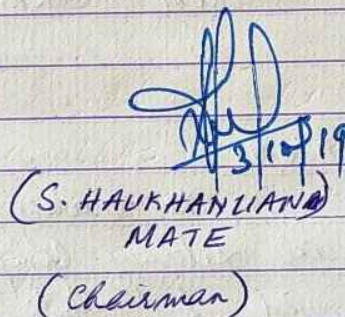 3/10/19
(S. HAUKHANLIANA)
MATE
(Chairman)